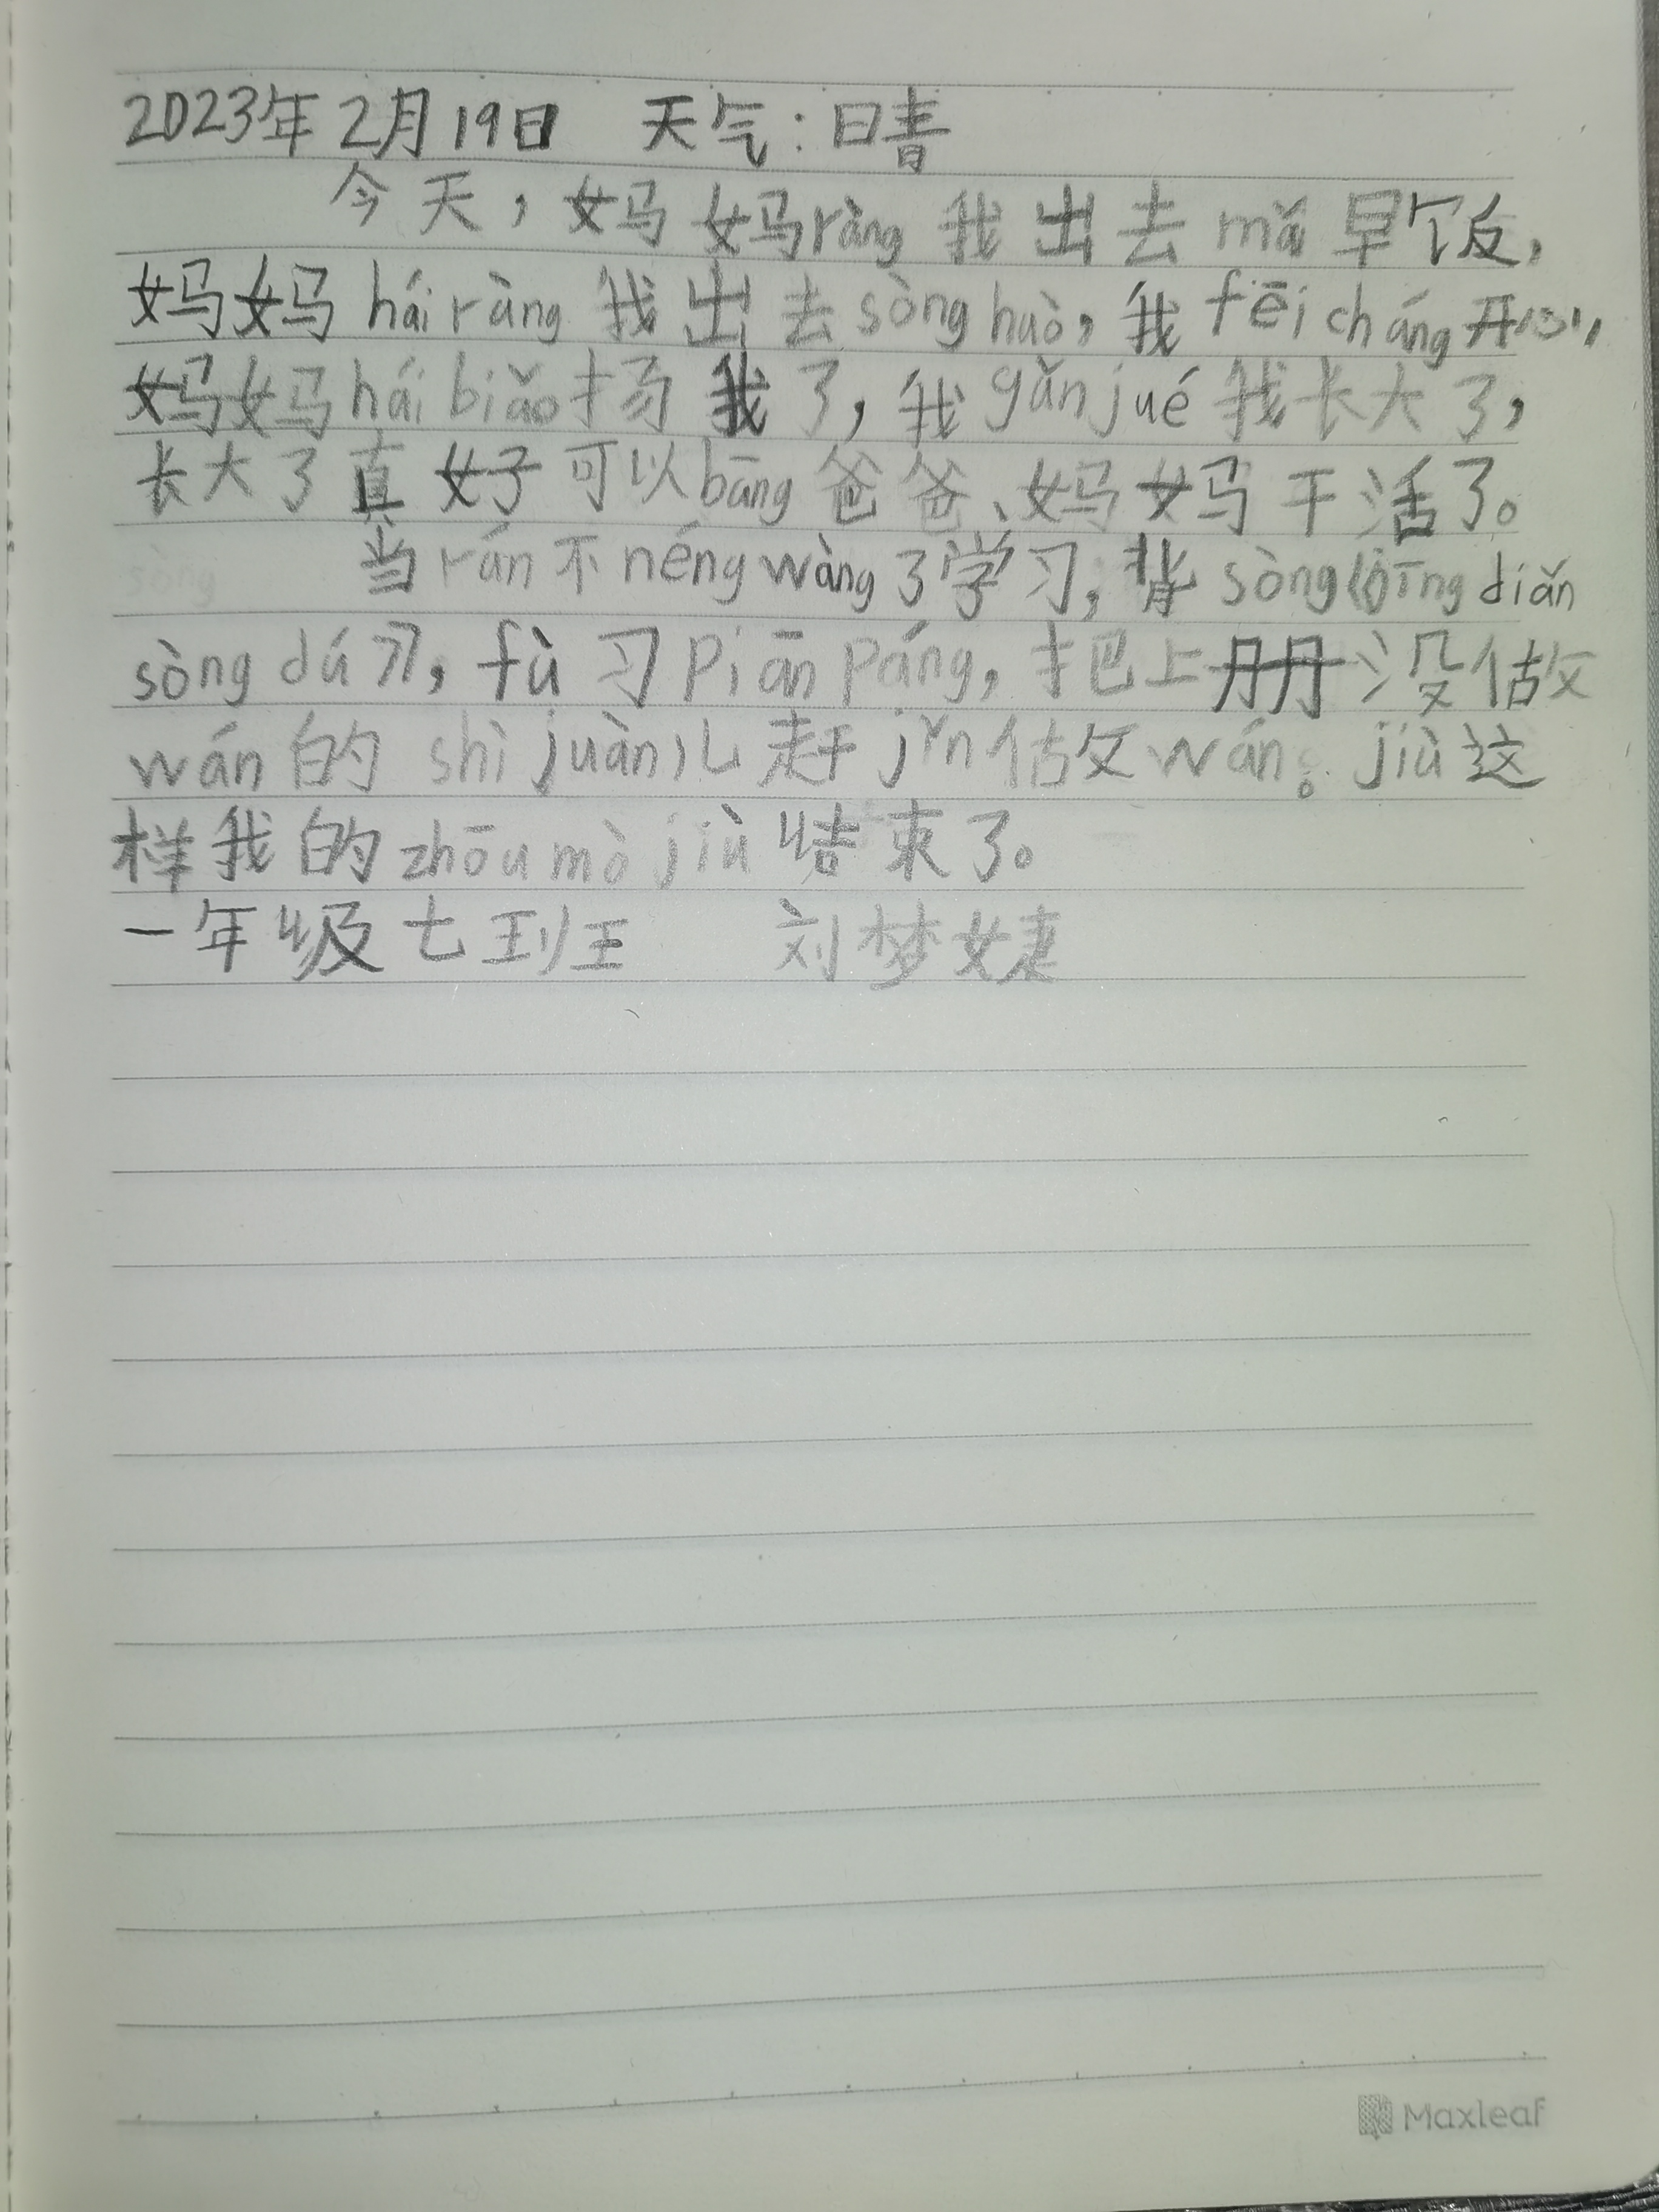 2023年2月19日 天气：晴
今天，妈妈ràng我出去mǎi早饭，
妈妈hái ràng我出去sòng huò，我fēi cháng开心，
妈妈hái biǎo扬我了，我gǎn jué我长大了，
长大了真好可以bāng爸爸、妈妈干活了。
当rán不néng wàng了学习，背sòng jīng diǎn
sòng dú习，fù习Piān Páng，把上册没做
wán的shì juàn儿赶jǐn做wán。jiù这
样我的zhōu mò jiù结束了。
一年级七班 刘梦婕
Maxleaf